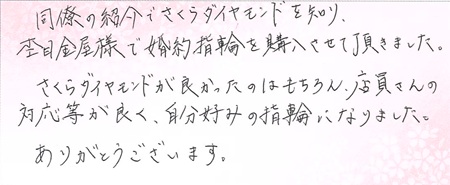 同僚の紹介でさくらダイヤモンドを知り、
杢目金屋様で婚約指輪を購入させて頂きました。
さくらダイヤモンドが良かったのはもちろん、店員さんの
対応等が良く、自分好みの指輪になりました。
ありがとうございます。